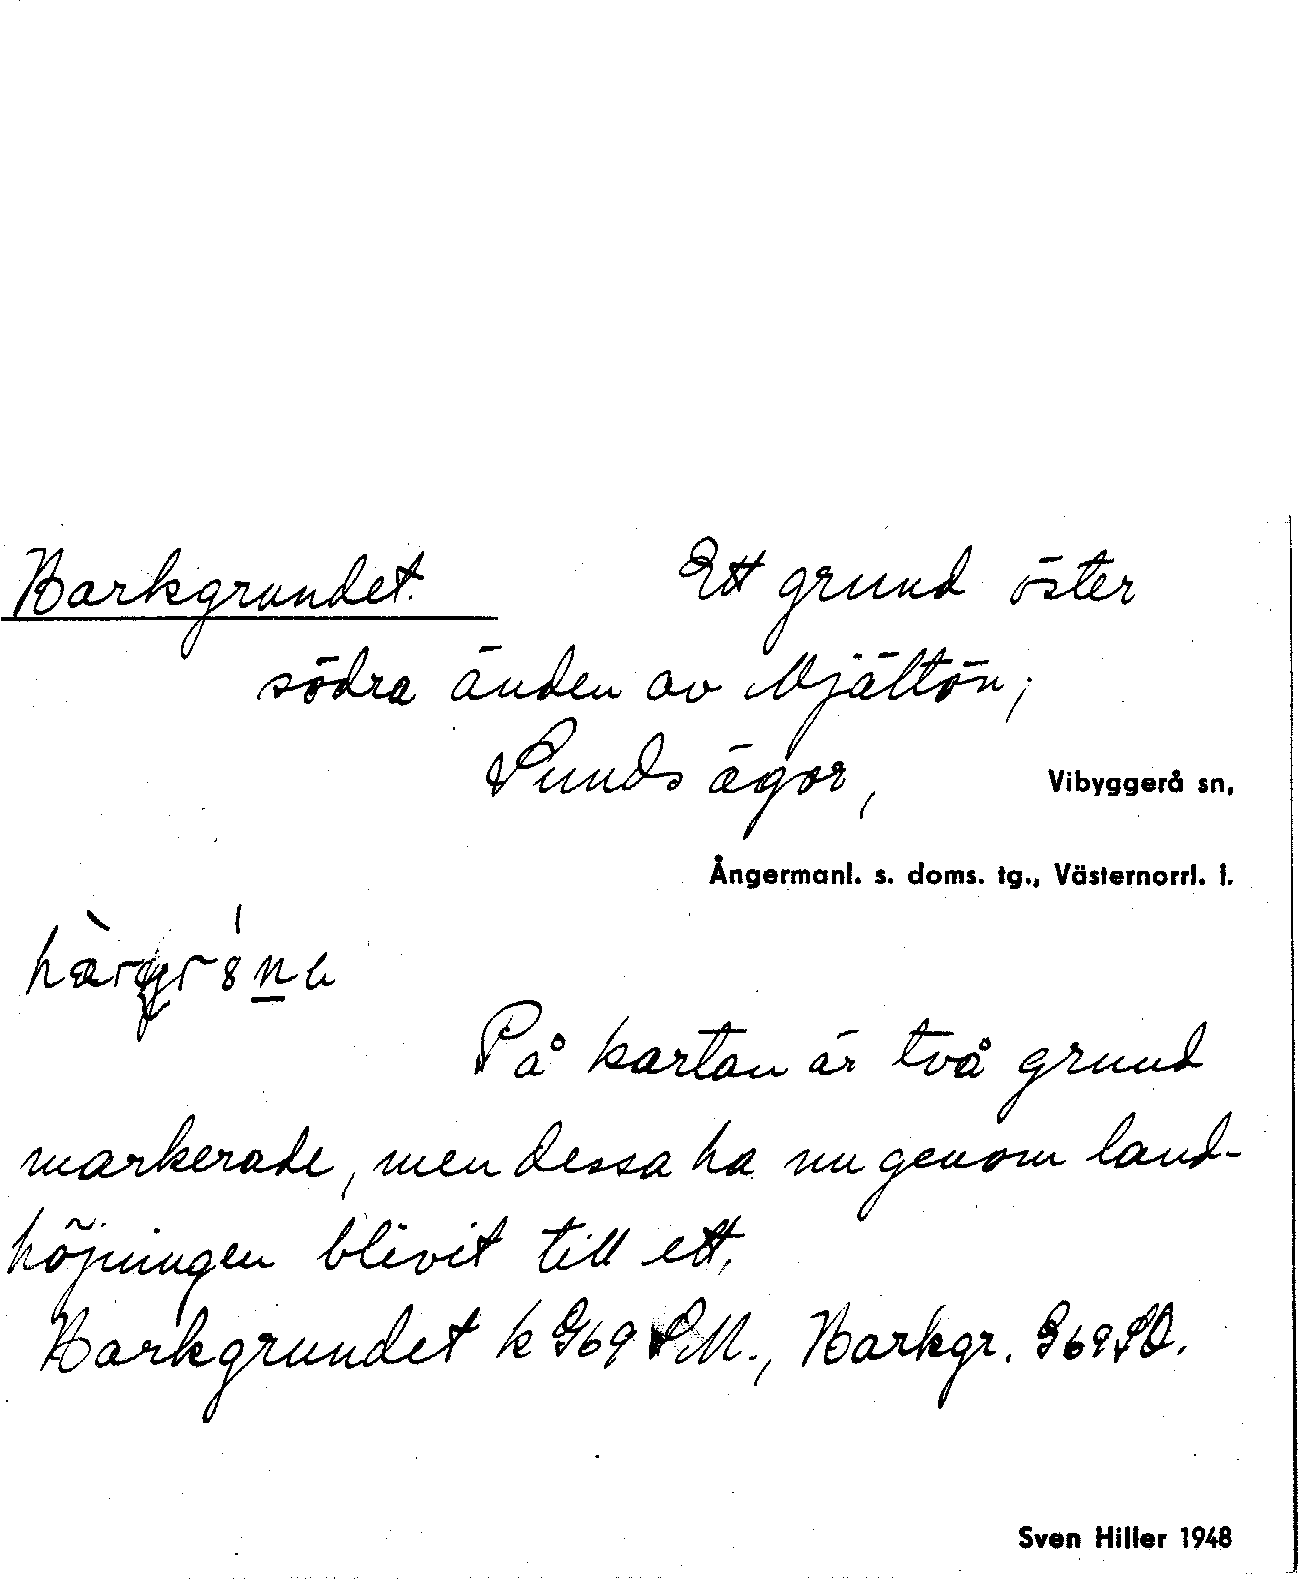 Barkgrundet. Ett grund öster
södra änden av Mjältön;
Sunds ägor, Vibyggerå sn,
Ångermanl. s. doms. tg., Västernorrl. l.
På kartan är två grund
markerade, men dessa ha nu genom land-
höjningen blivit till ett.
Barkgrundet k G69 SM., Barkgr. G69 SO.
Sven Hiller 1948